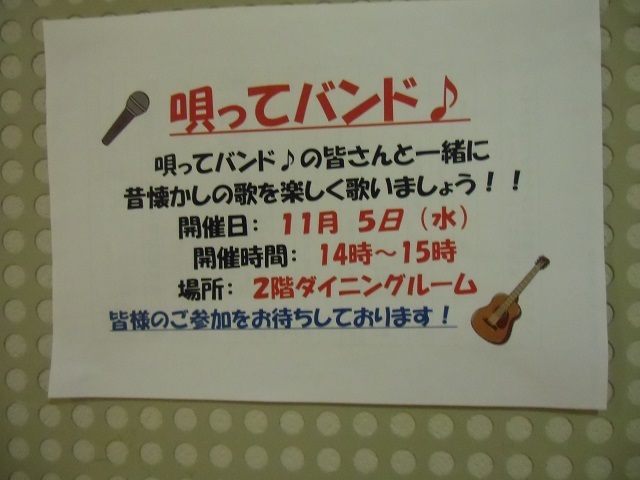 唄ってバンド♪
唄ってバンド♪の皆さんと一緒に
昔懐かしの歌を楽しく歌いましょう！！
開催日： 11月 5日（水）
開催時間： 14時～15時
場所： 2階ダイニングルーム
皆様のご参加をお待ちしております！